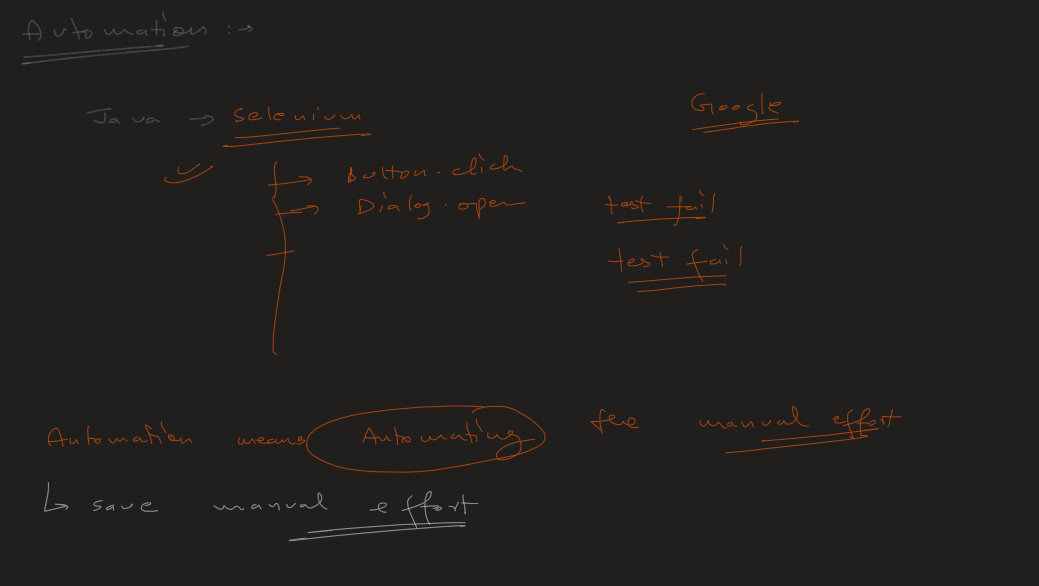 Automation :→
Java → Selenium
Google
→ Button.click
→ Dialog.open
test fail
test fail
Automation means Automating the manual effort
↳ save manual effort